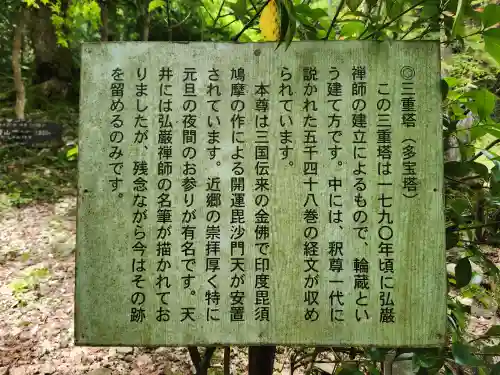 ◎三重塔（多宝塔）
この三重塔は一七九〇年頃に弘巌
禅師の建立によるもので、輪蔵とい
う建て方です。中には、釈尊一代に
説かれた五千四十八巻の経文が収め
られています。
本尊は三国伝来の金佛で印度毘須
鳩摩の作による開運毘沙門天が安置
されています。近郷の崇拝厚く特に
元旦の夜間のお参りが有名です。天
井には弘巌禅師の名筆が描かれてお
りましたが、残念ながら今はその跡
を留めるのみです。